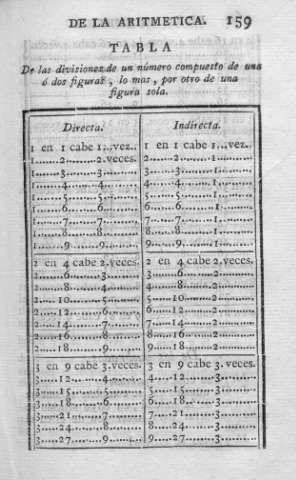 DE LA ARITMETICA. 159
TABLA
De las divisiones de un número compuesto de una
ó dos figuras, lo mas, por otro de una
figura sola.
Directa. Indirecta.
1 en 1 cabe 1...vez.. 1 en 1 cabe 1...vez..
1......2........2.veces. 2......2........1......
1......3........3....... 3......3........1......
1......4........4....... 4......4........1......
1......5........5....... 5......5........1......
1......6........6....... 6......6........1......
1......7........7....... 7......7........1......
1......8........8....... 8......8........1......
1......9........9....... 9......9........1......
2 en 4 cabe 2.veces. 2 en 4 cabe 2.veces.
2......6........3....... 3......6........2.......
2......8........4....... 4......8........2.......
2.....10........5....... 5.....10........2.......
2.....12........6....... 6.....12........2.......
2.....14........7....... 7.....14........2.......
2.....16........8....... 8.....16........2.......
2.....18........9....... 9.....18........2.......
3 en 9 cabe 3.veces. 3 en 9 cabe 3.veces.
3.....12........4....... 4.....12........3.......
3.....15........5....... 5.....15........3.......
3.....18........6....... 6.....18........3.......
3.....21........7....... 7.....21........3.......
3.....24........8....... 8.....24........3.......
3.....27........9....... 9.....27........3.......